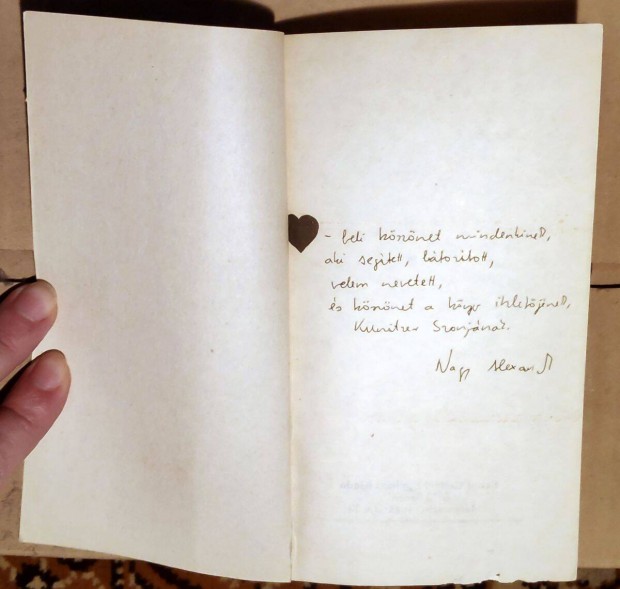 - beli köszönet mindenkinek,
aki segített, bátorított,
velem nevetett,
és köszönet a könyv ihletőjének,
Kunitzer Szonjának.
Nagy